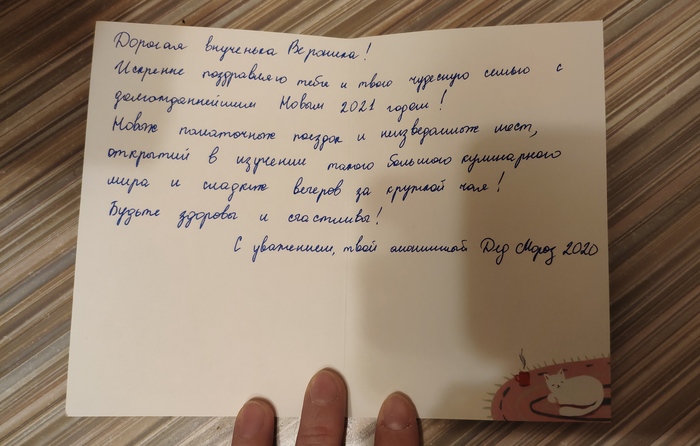 Дорогая внученька Вероника!
Искренне поздравляю тебя и твою чудесную семью с
долгожданнейшим Новым 2021 годом!
Новых палаточных поездок и неизведанных мест,
открытий в изучении такого большого кулинарного
мира и сладких вечеров за кружкой чая!
Будьте здоровы и счастливы!
С уважением, твой анонимный Дед Мороз 2020